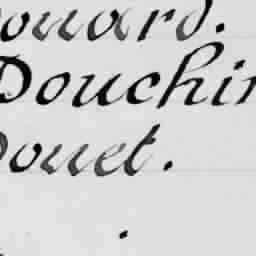 ouard.
Douchin
Douet.